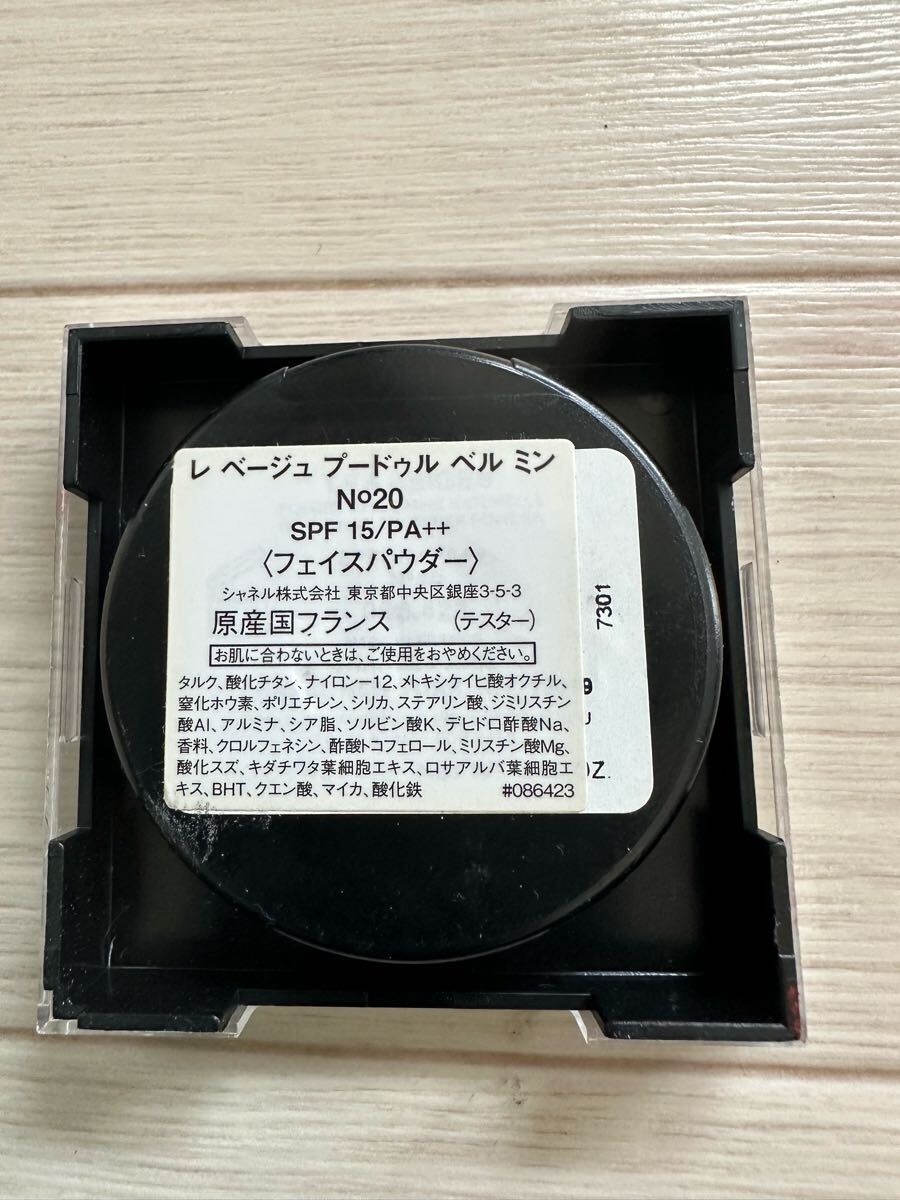 レ ベージュ プードゥル ベル ミン
Nº20
SPF 15/PA++
〈フェイスパウダー〉
シャネル株式会社 東京都中央区銀座3-5-3
原産国フランス (テスター)
お肌に合わないときは、ご使用をおやめください。
タルク、酸化チタン、ナイロンー12、メトキシケイヒ酸オクチル、
窒化ホウ素、ポリエチレン、シリカ、ステアリン酸、ジミリスチン
酸Al、アルミナ、シア脂、ソルビン酸K、デヒドロ酢酸Na、
香料、クロルフェネシン、酢酸トコフェロール、ミリスチン酸Mg、
酸化スズ、キダチワタ葉細胞エキス、ロサアルバ葉細胞エ
キス、BHT、クエン酸、マイカ、酸化鉄 #086423
7301
9
U
OZ.